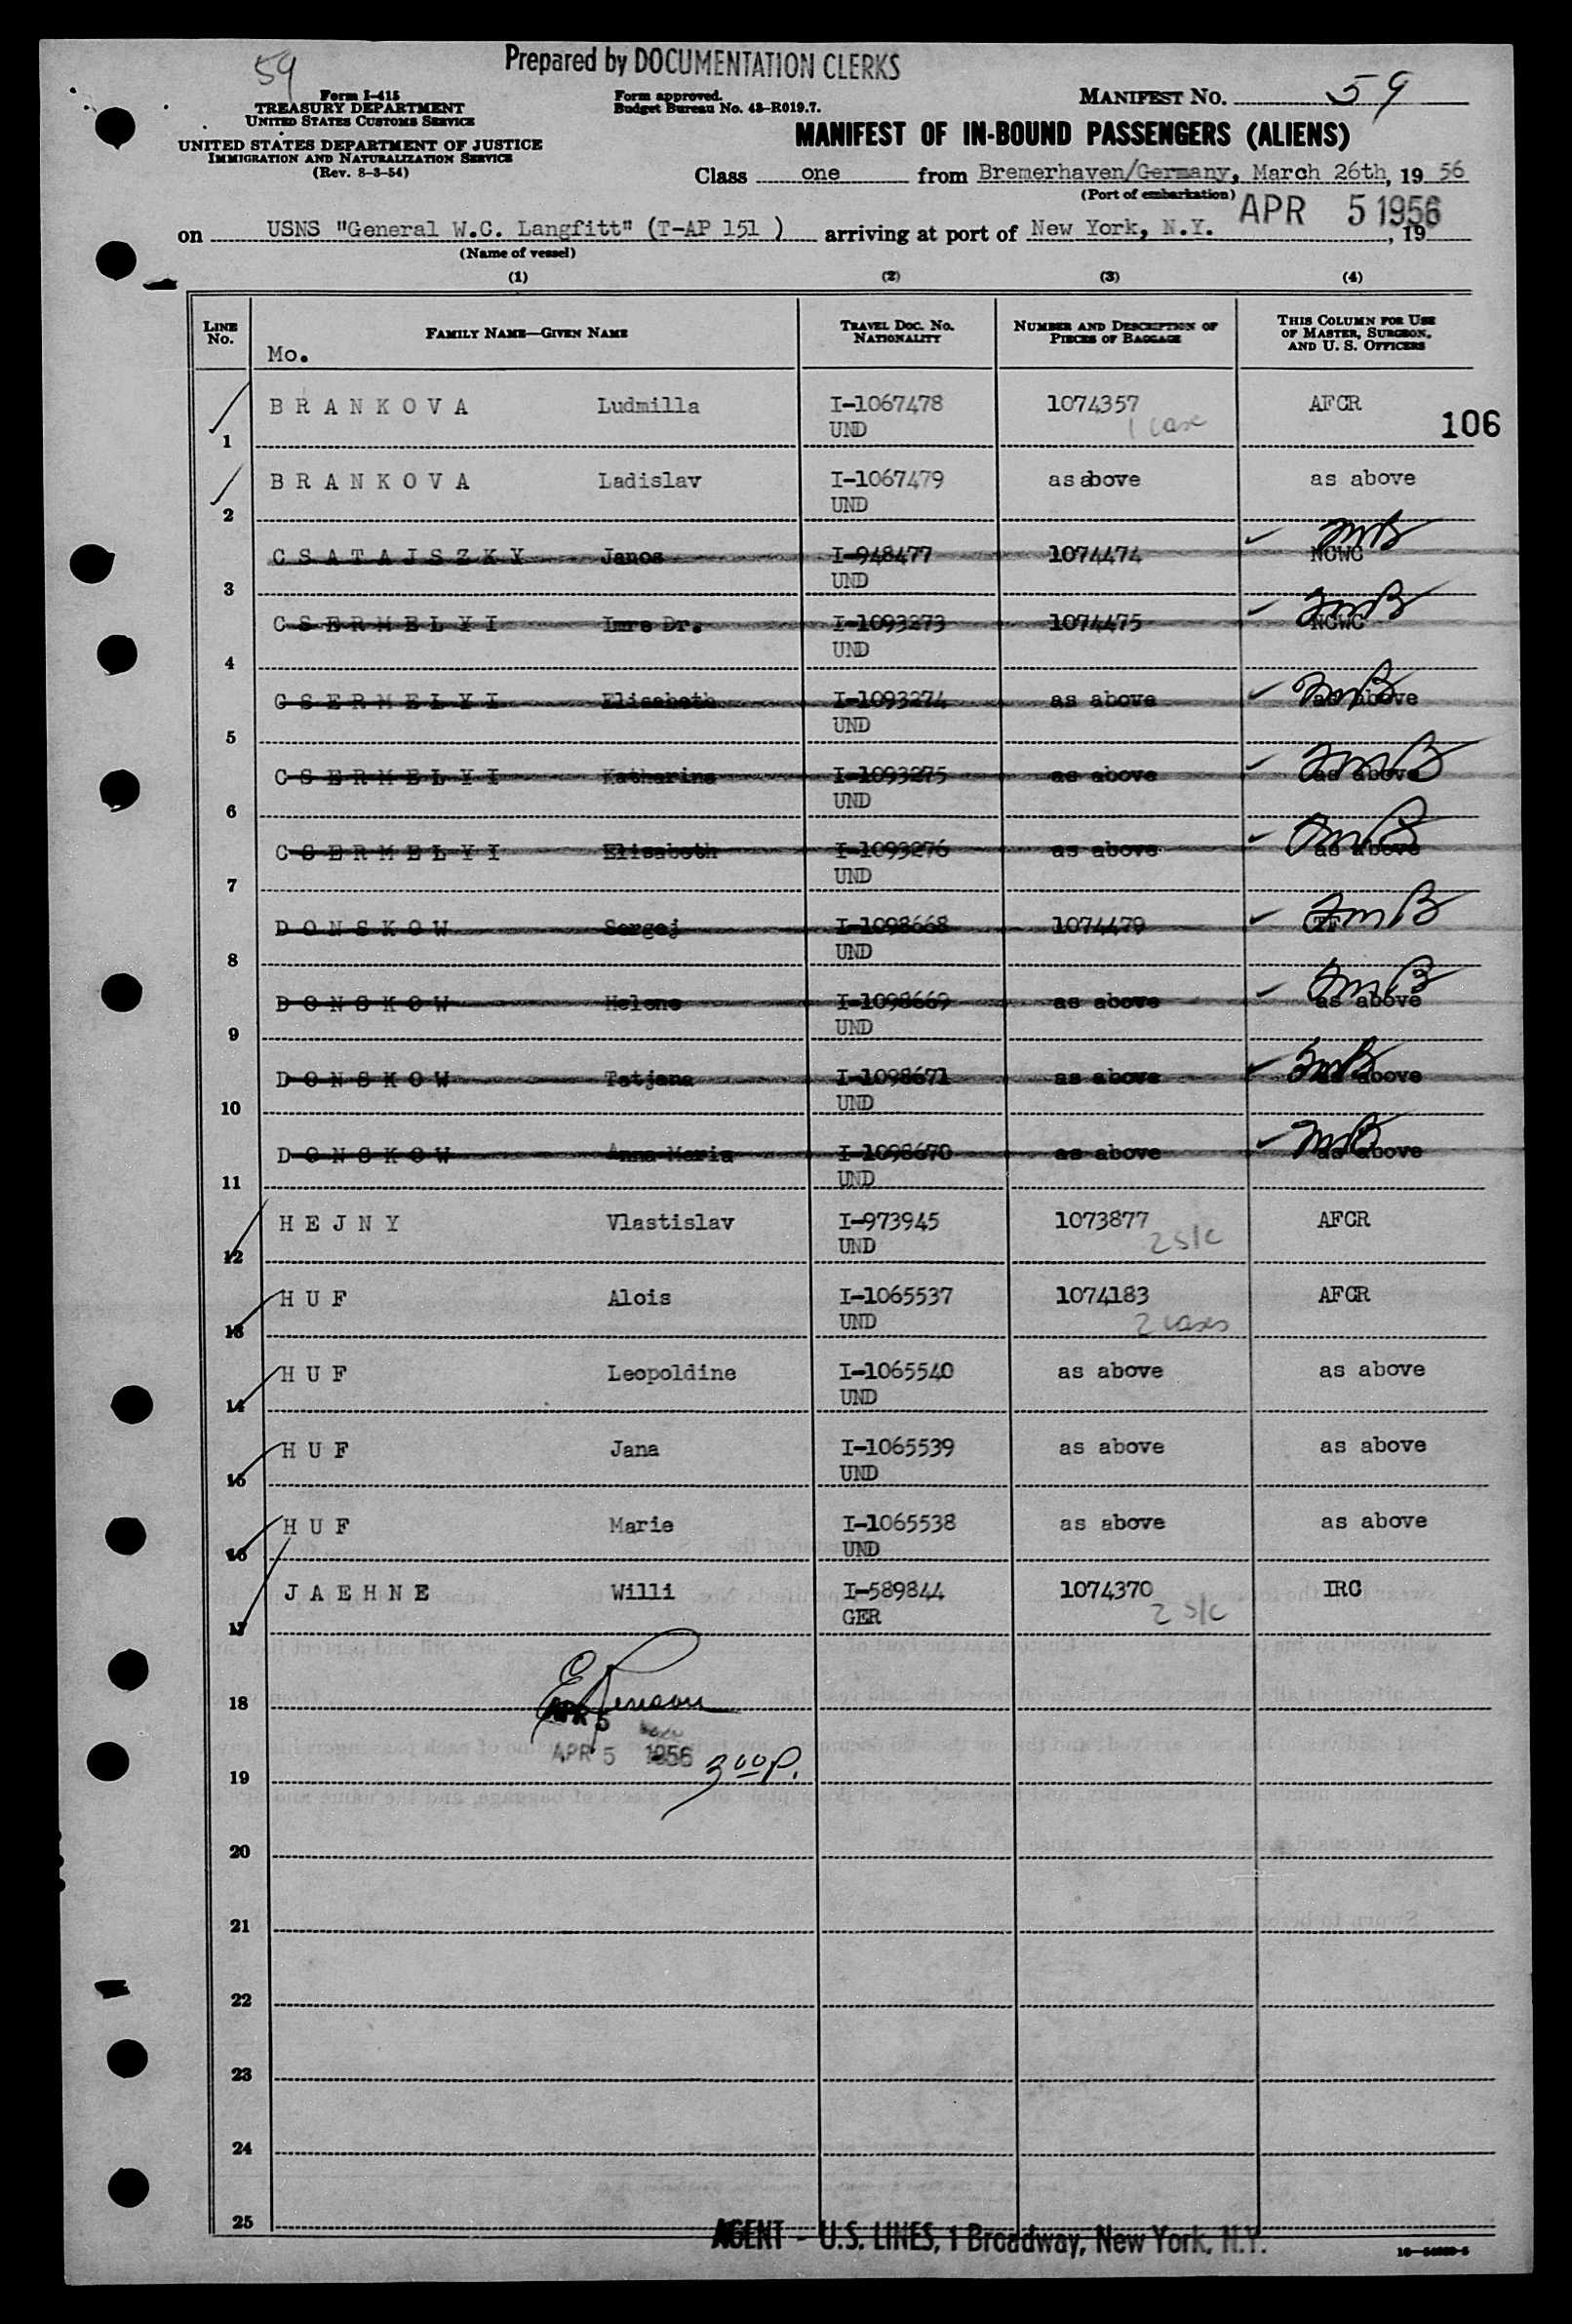 59
Prepared by DOCUMENTATION CLERKS
Form I-415
TREASURY DEPARTMENT
UNITED STATES CUSTOMS SERVICE
UNITED STATES DEPARTMENT OF JUSTICE
IMMIGRATION AND NATURALIZATION SERVICE
(Rev. 8-3-54)
Form approved.
Budget Bureau No. 43-R019.7.
MANIFEST NO. 59
MANIFEST OF IN-BOUND PASSENGERS (ALIENS)
Class one from Bremerhaven/Germany, March 26th, 19 56
(Port of embarkation)
APR 5 1956
on USNS "General W.C. Langfitt" (T-AP 151 ) arriving at port of New York, N.Y. , 19
(Name of vessel)
(1) (2) (3) (4)
LINE No. FAMILY NAME—GIVEN NAME TRAVEL DOC. NO. NATIONALITY NUMBER AND DESCRIPTION OF PIECES OF BAGGAGE THIS COLUMN FOR USE OF MASTER, SURGEON, AND U. S. OFFICERS
Mo.
B R A N K O V A Ludmilla I-1067478 1074357 AFCR
1 UND 1 case 106
B R A N K O V A Ladislav I-1067479 as above as above
2 UND
C S A T A J S Z K Y Janos I-948477 1074474 NCWC
3 UND
C S E R M E L Y I Imre Dr. I-1093273 1074475 NCWC
4 UND
C S E R M E L Y I Elisabeth I-1093274 as above as above
5 UND
C S E R M E L Y I Katharina I-1093275 as above as above
6 UND
C S E R M E L Y I Elisabeth I-1093276 as above as above
7 UND
D O N S K O W Sergej I-1098668 1074479 TF
8 UND
D O N S K O W Helene I-1098669 as above as above
9 UND
D O N S K O W Tatjana I-1098671 as above as above
10 UND
D O N S K O W Anna Maria I-1098670 as above as above
11 UND
H E J N Y Vlastislav I-973945 1073877 AFCR
12 UND 2 s/c
H U F Alois I-1065537 1074183 AFCR
13 UND 2 cases
H U F Leopoldine I-1065540 as above as above
14 UND
H U F Jana I-1065539 as above as above
15 UND
H U F Marie I-1065538 as above as above
16 UND
J A E H N E Willi I-589844 1074370 IRC
17 GER 2 s/c
18
APR 5
APR 5 1956 3 00 P.
19
20
21
22
23
24
25
AGENT - U.S. LINES, 1 Broadway, New York, N.Y.